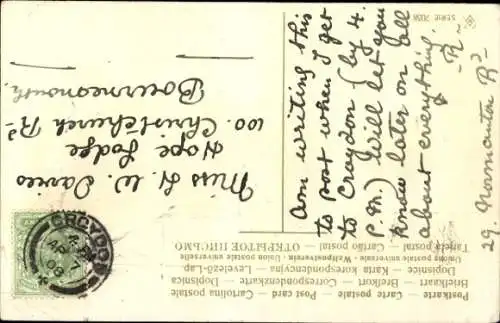 Postkarte — Carte postale — Post card — Cartolina postale
Briefkaart — Brefkort — Correspondenzkarte — Dopisnica
Dopisnice — Karta korespondencyjna — Levelező-Lap —
Union postale universelle — Weltpostverein — Union postale universelle
Tarjeta postal — Cartão postal — ОТКРЫТОЕ ПИСЬМО
SERIE 705
29. Ramanton Rd
Am writing this
to post when I get
to Croydon (by 4.
P.M.) Will let you
know later on all
about everything.
- R -
Miss H. W. Davies
Hope Lodge
100. Christchurch Rd
Bournemouth
CROYDON
AP 1
08